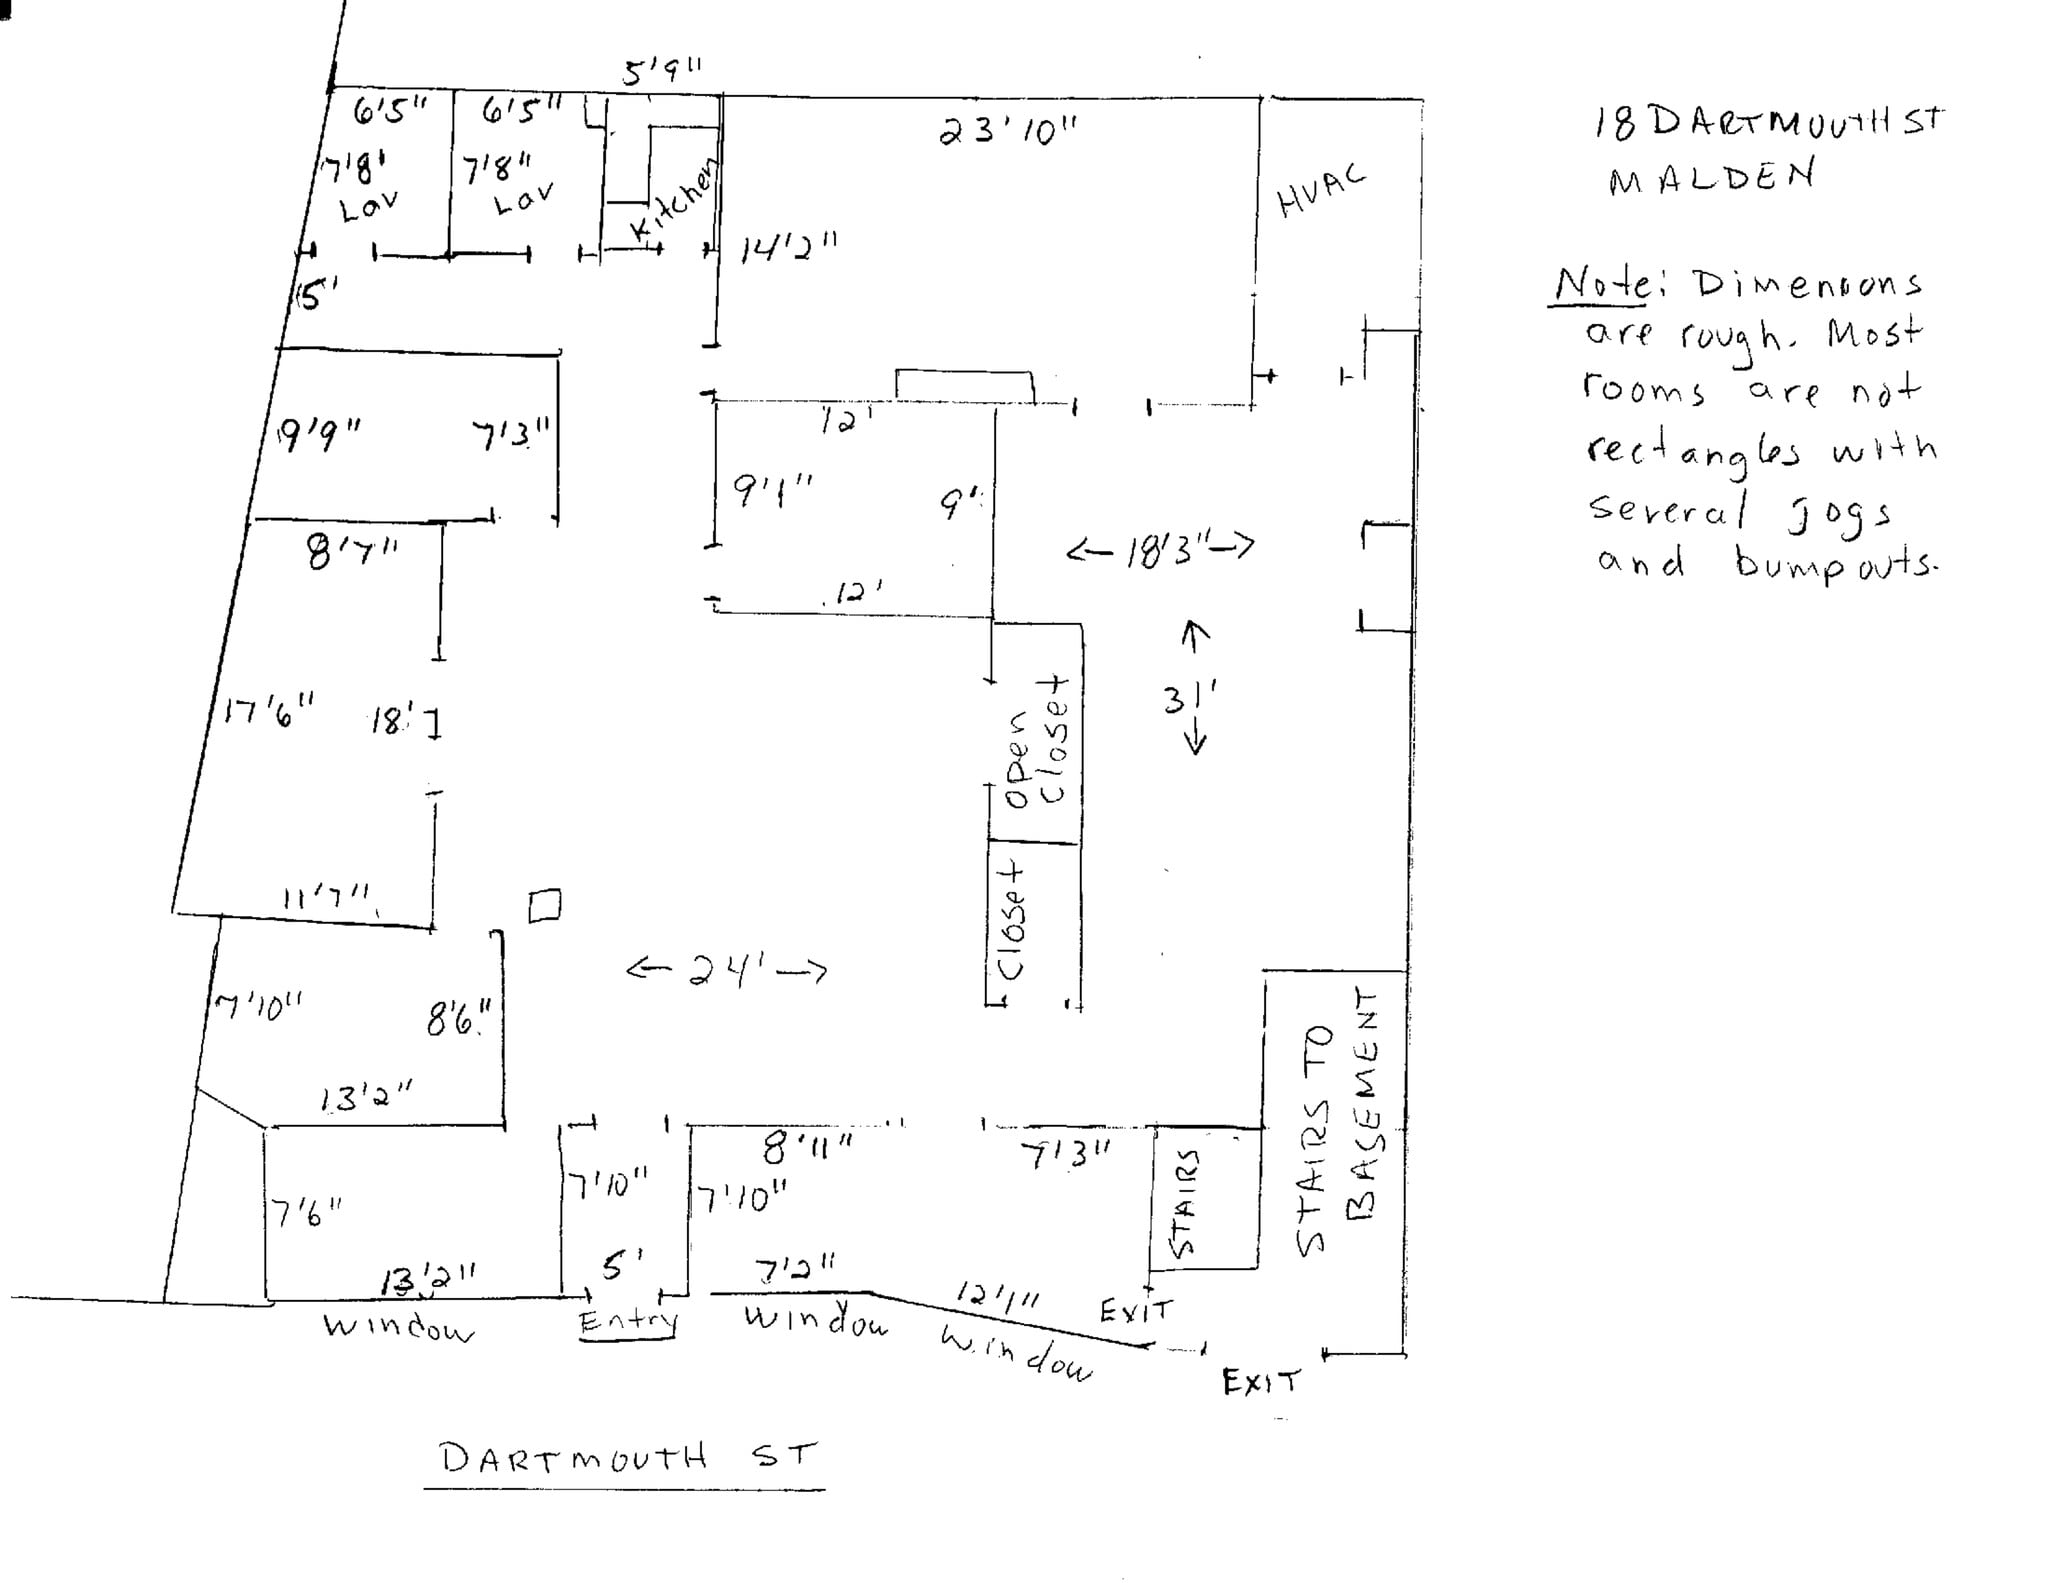 5'9"
6'5"
6'5"
23'10"
18 DARTMOUTH ST
MALDEN
7'8'
Lav
7'8"
Lav
Kitchen
HVAC
14'2"
5'
Note: Dimensions
are rough. Most
rooms are not
rectangles with
several jogs
and bumpouts.
9'9"
7'3"
12'
9'1"
9'
8'7"
← 18'3" →
12'
31'
17'6"
18'
Open
Closet
11'7"
Closet
← 24' →
7'10"
8'6"
STAIRS TO
BASEMENT
13'2"
8'11"
7'3"
7'10"
7'10"
STAIRS
7'6"
5'
13'2"
7'2"
12'1"
EXIT
Window
Entry
Window
Window
EXIT
DARTMOUTH ST